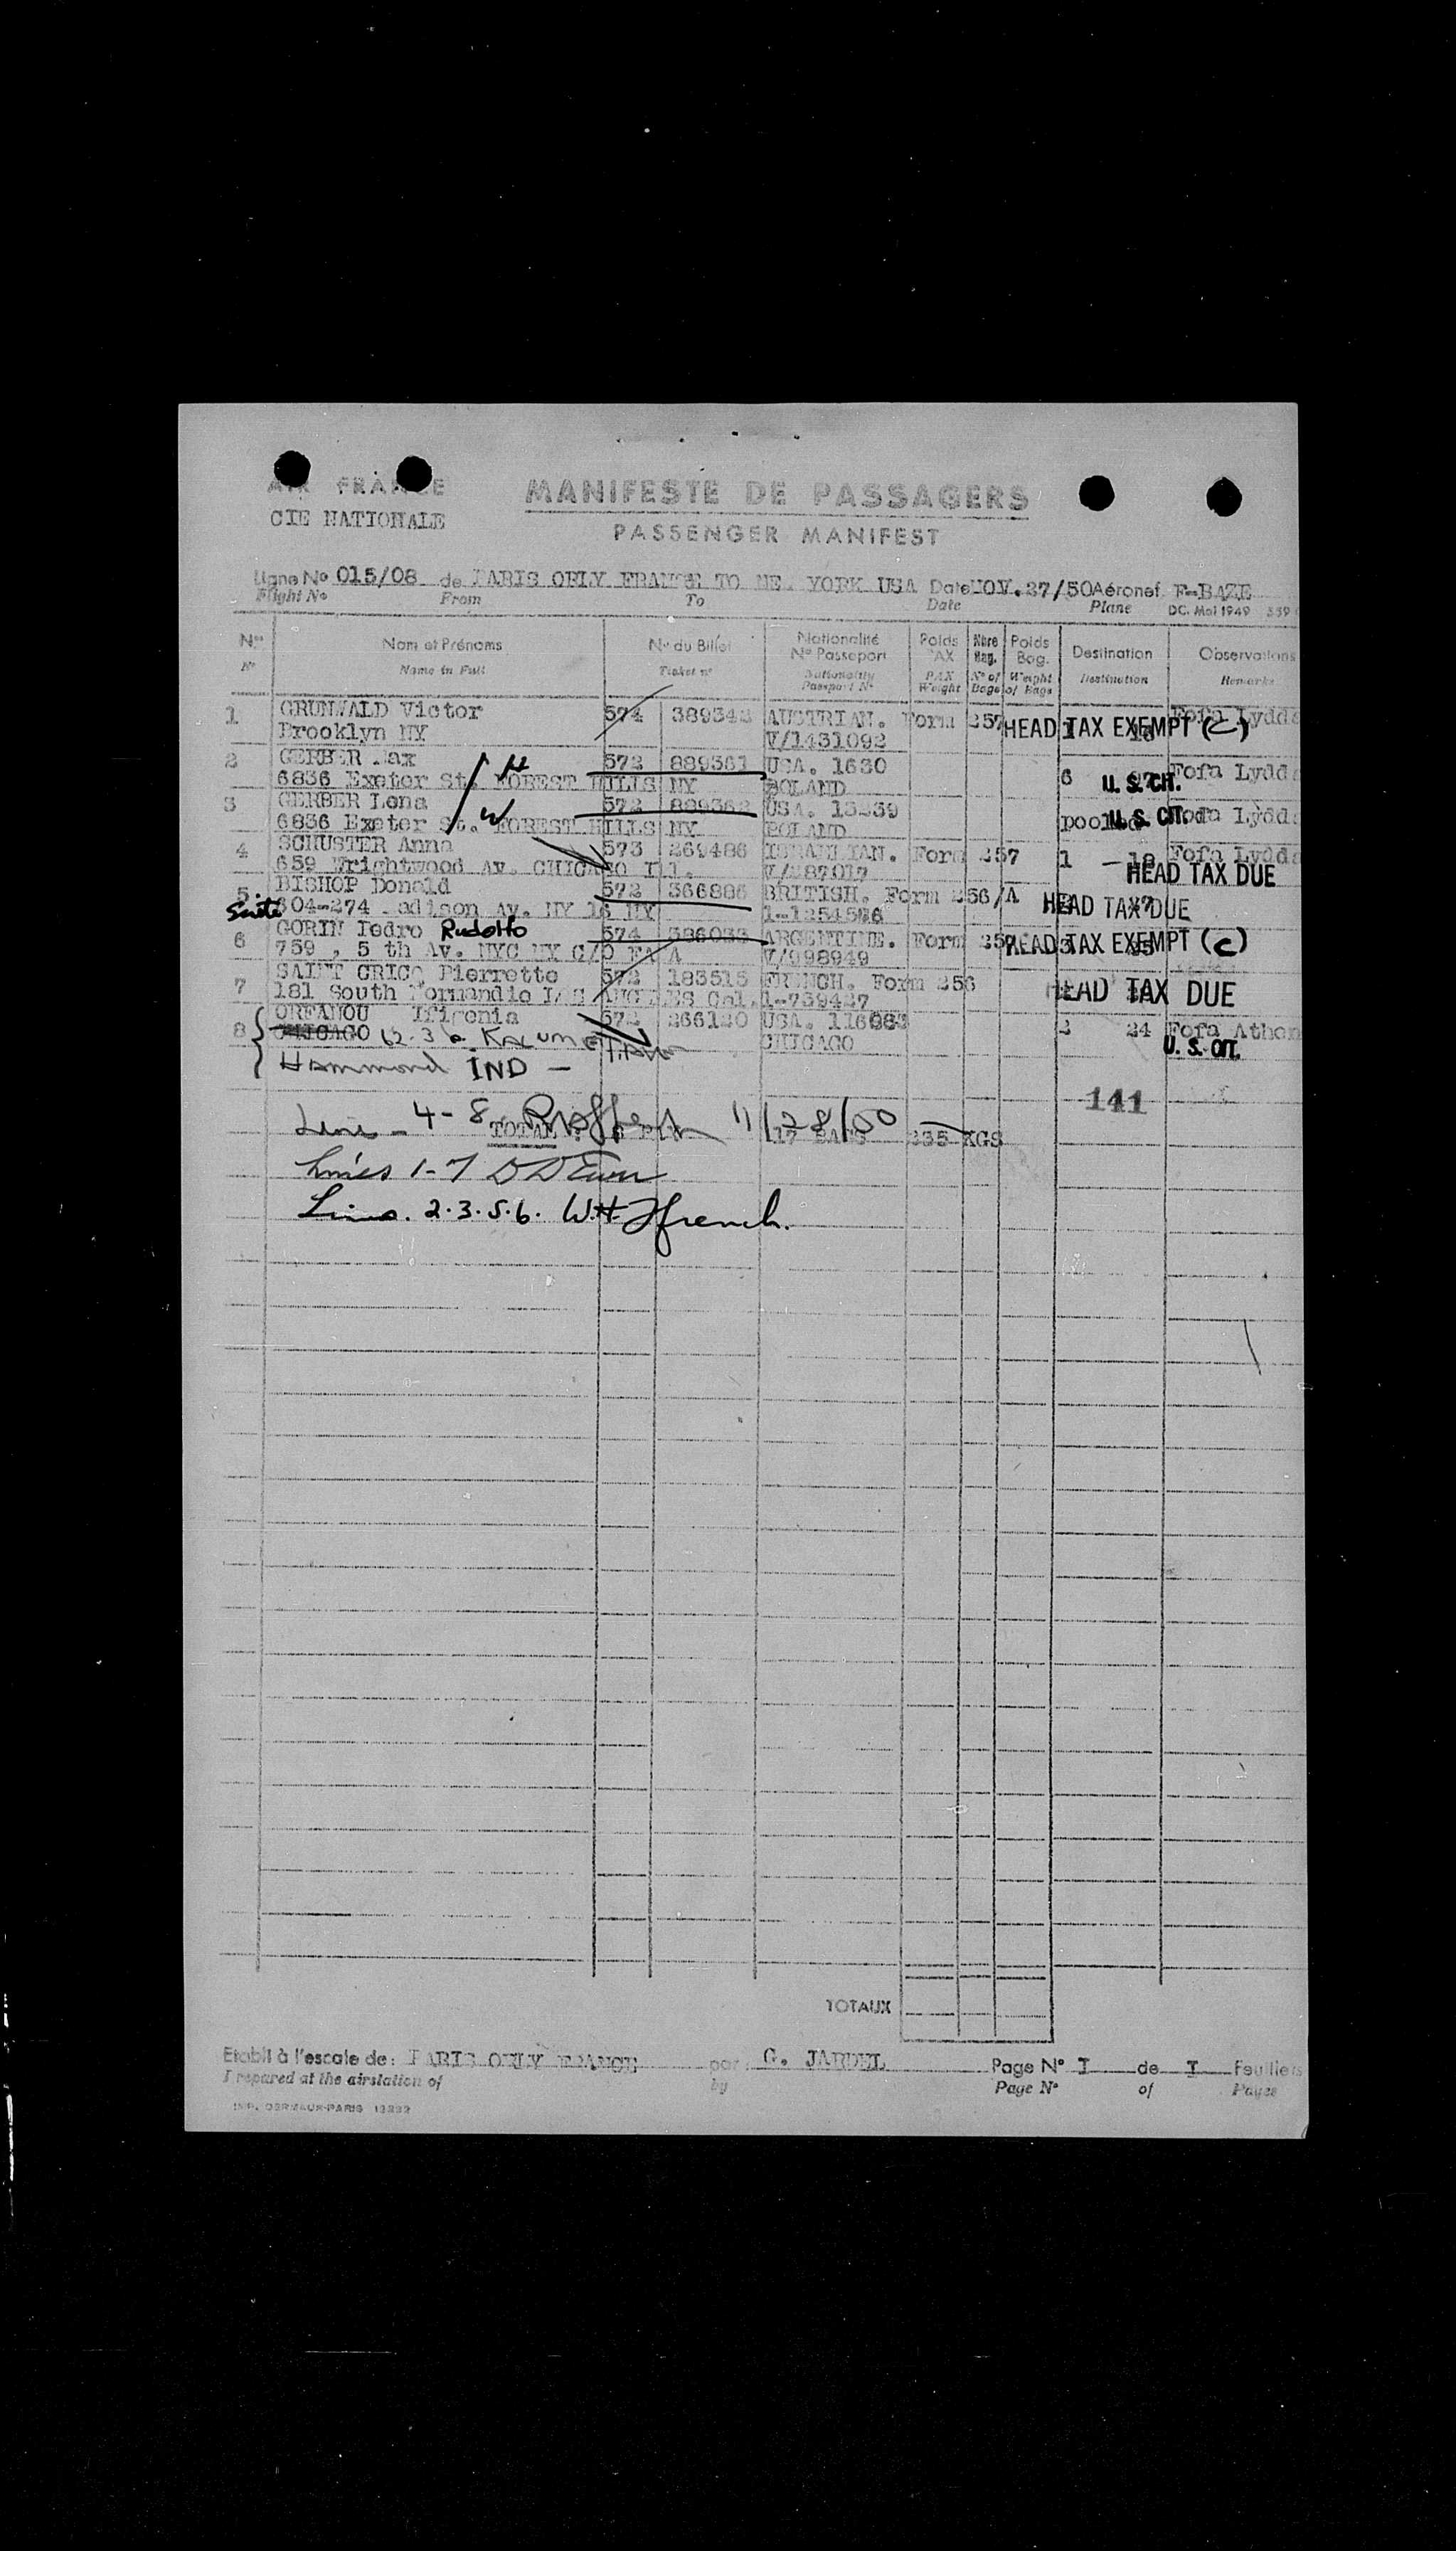 AIR FRANCE
CIE NATIONALE
MANIFESTE DE PASSAGERS
PASSENGER MANIFEST
Ligne No 015/08 de PARIS ORLY FRANCE TO NE. YORK USA Date NOV.27/50 Aéronef F-BAZE
Flight No From To Date Plane DC. Mai 1949 339
Nos Nom et Prénoms No du Billet Nationalité No Passeport Poids PAX Nbre Bag. Poids Bag. Destination Observations
No Name in Full Ticket no Nationality Passport No PAX Weight No of Bags Weight of Bags Destination Remarks
1 GRUNWALD Victor 574 389342 AUSTRIAN. Form 257 HEAD TAX EXEMPT (C) Fofa Lydda
Brooklyn NY V/1431092
2 GERBER Max H 572 889361 USA. 1630 6 U. S. CIT. Fofa Lydda
6836 Exeter St. FOREST HILLS NY POLAND
3 GERBER Lena W 572 889362 USA. 13239 pooled U. S. CIT. Fofa Lydda
6836 Exeter St. FOREST HILLS NY POLAND
4 SCHUSTER Anna 573 269486 ISRAELIAN. Form 257 1 18 Fofa Lydda
659 Wrightwood Av. CHICAGO Ill. V/287017 HEAD TAX DUE
5. BISHOP Donald 572 366886 BRITISH. Form 256/A HEAD TAX DUE
Suite 304-274 Madison Av. NY 16 NY I-1254576
6 GORIN Pedro Rudolfo 574 386033 ARGENTINE. Form 257 HEAD TAX EXEMPT (C)
759 , 5 th Av. NYC NY C/O FA A V/998949
7 SAINT CRICQ Pierrette 572 183515 FRENCH. Form 256 HEAD TAX DUE
181 South Normandie LOS ANGELES Cal. I-739427
8 ORFANOU Ifigenia 572 266120 USA. 116083 2 24 Fofa Athen
CHICAGO CHICAGO U. S. CIT.
Hammond IND -
141
Lines - 4-8 11/28/50
TOTAL 17 BAGS 235 KGS
Lines 1-7
Lines. 2.3.5.6. W.H. Ffrench.
TOTAUX
Etabli à l'escale de: PARIS ORLY FRANCE par G. JARDEL Page No I de I Feuillets
Prepared at the airstation of by Page No of Pages
IMP. DERMAUX-PARIS 13232